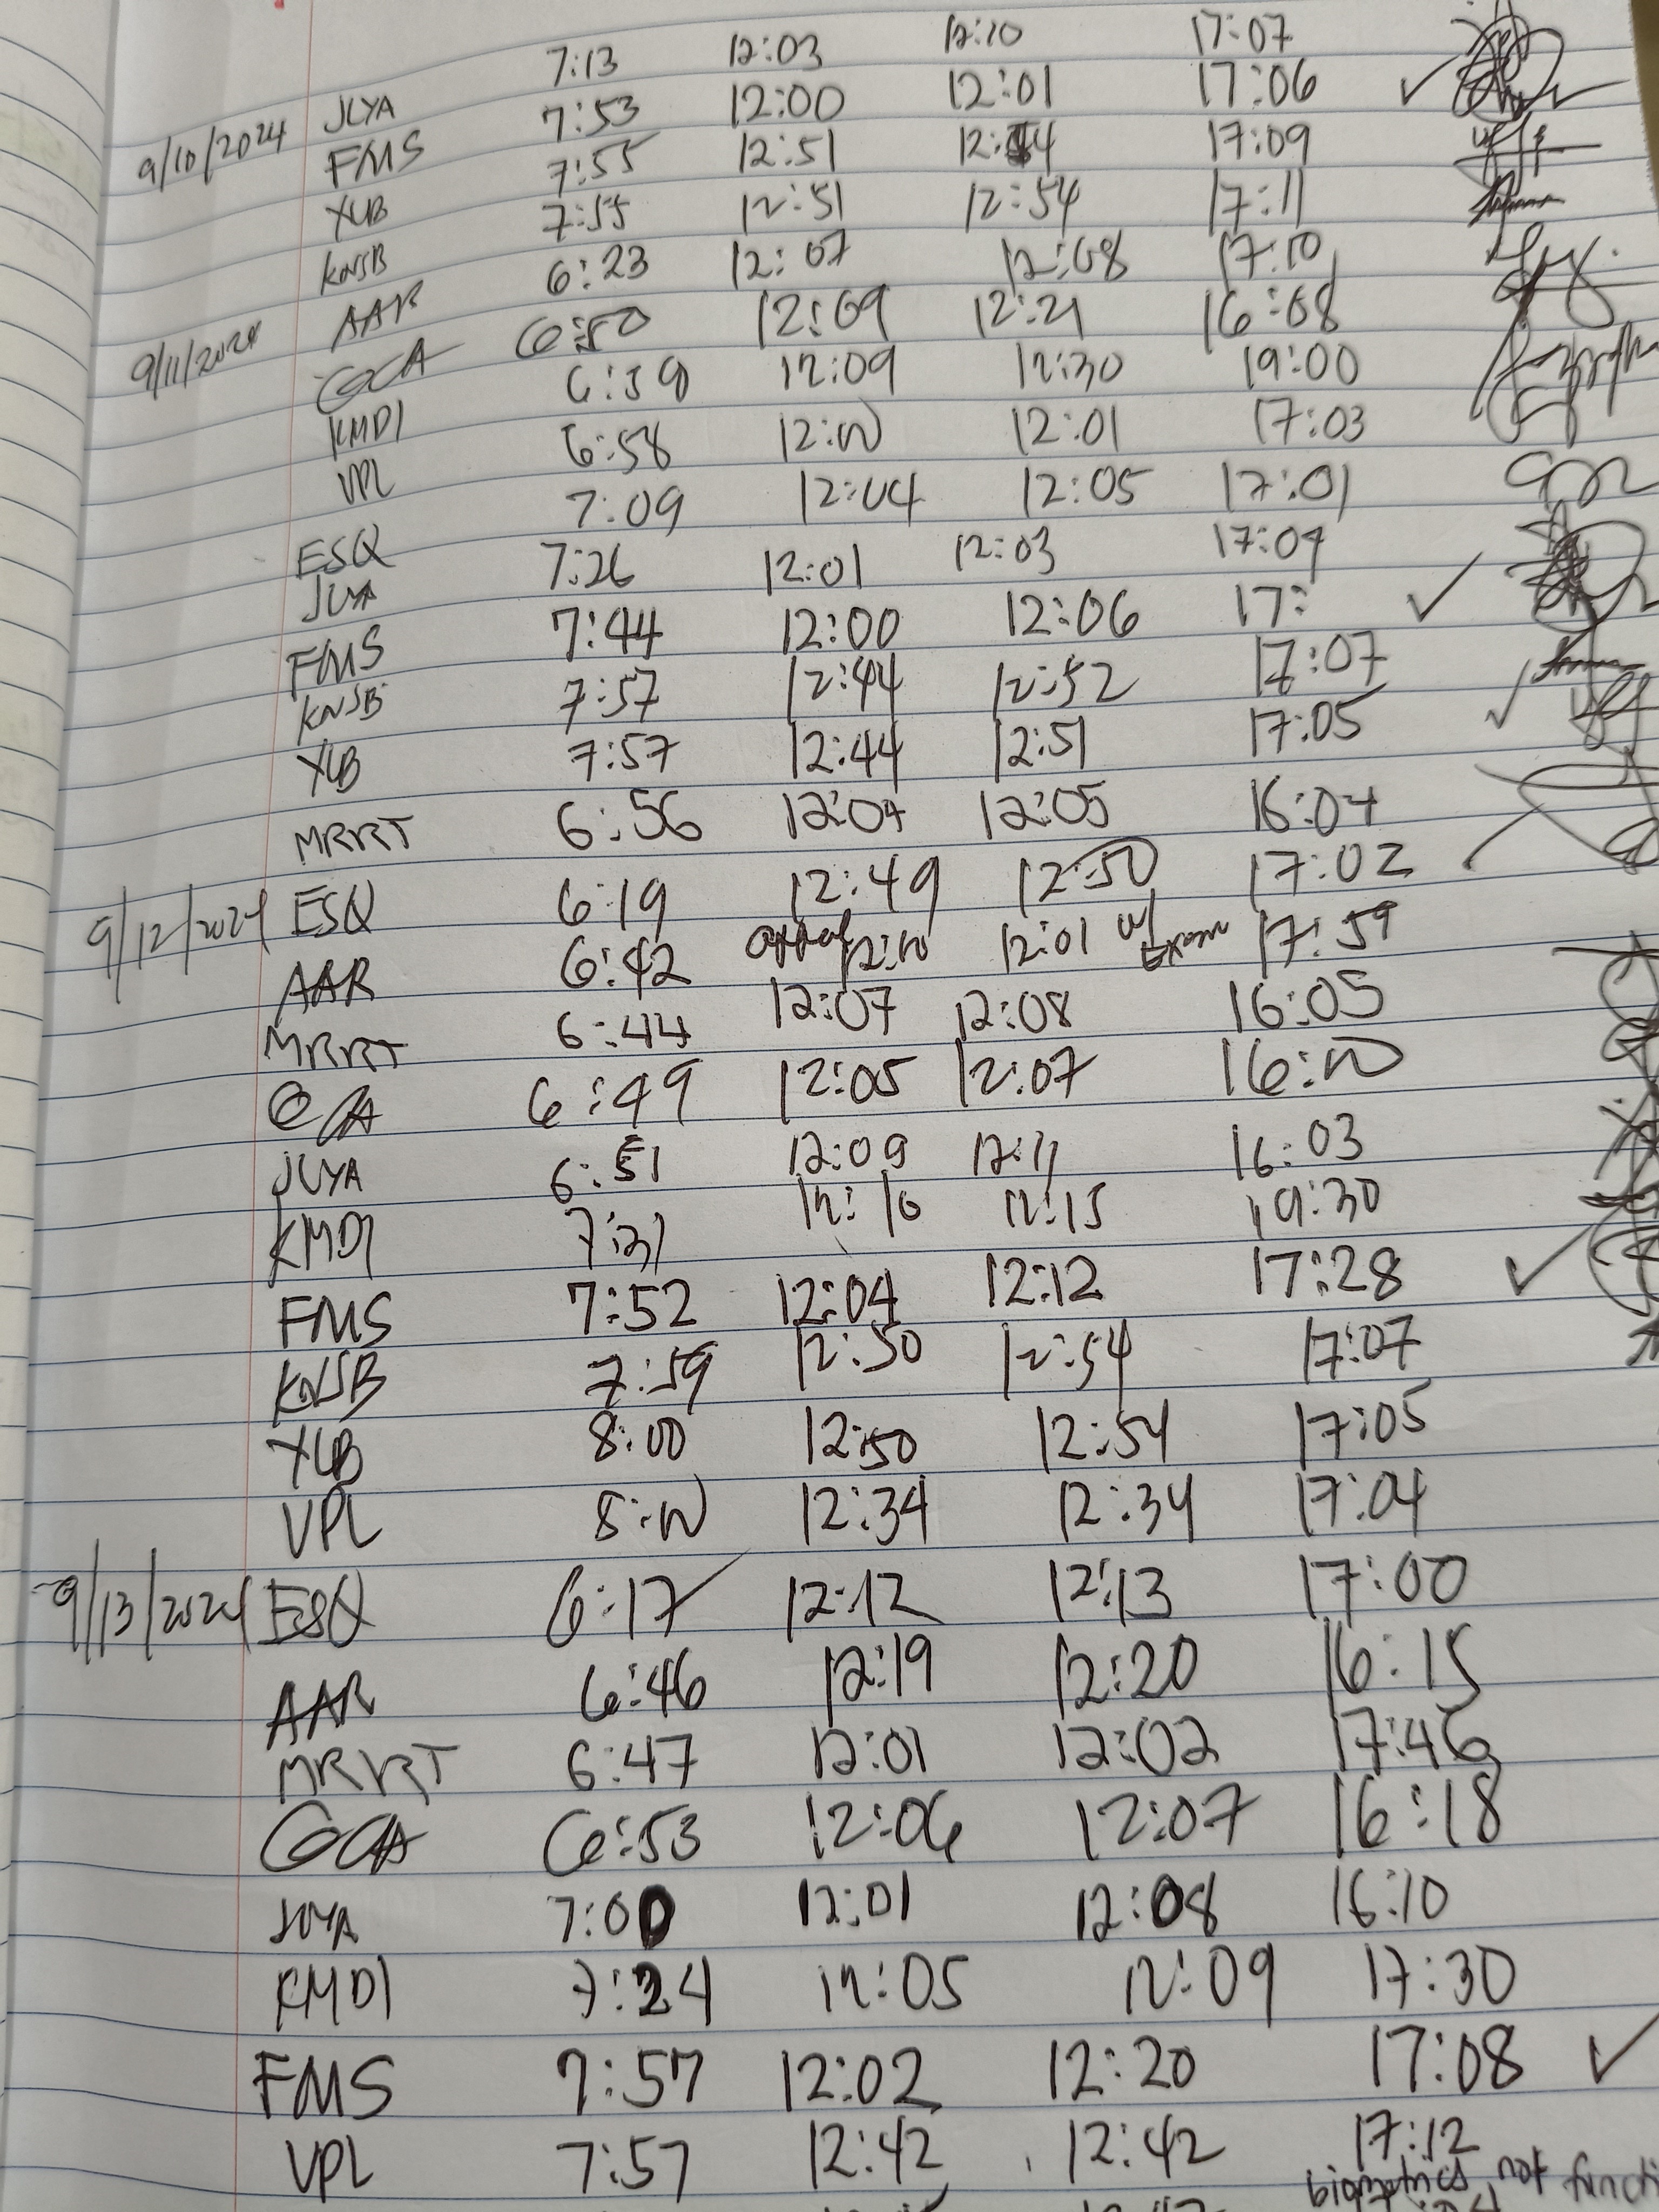 9/10/2024 JUYA 7:13 12:03 12:10 17:07
FMS 7:53 12:00 12:01 17:06 ✓
YUB 7:55 12:51 17:09
KNSB 7:55 12:51 12:54 17:11
9/11/2024 AAR 6:23 12:07 12:08 17:10
GCA 6:50 12:09 12:21 16:08
KMDI 6:59 12:09 12:30 19:00
VPL 6:58 12:00 12:01 17:03
ESQ 7:09 12:04 12:05 17:01
JUYA 7:26 12:01 12:03 17:04
FMS 7:44 12:00 12:06 17: ✓
KNSB 7:57 12:44 12:52 17:07
YUB 7:57 12:44 12:51 17:05 ✓
MRRT 6:56 12:04 12:05 16:04
9/12/2024 ESQ 6:19 12:49 12:50 17:02
AAR 6:42 12:00 12:01 w/ Exam 17:59
MRRT 6:44 12:07 12:08 16:05
GCA 6:49 12:05 12:07 16:00
JUYA 6:51 12:09 12:11 16:03
KMDI 7:31 12:10 12:15 19:30
FMS 7:52 12:04 12:12 17:28 ✓
KNSB 7:59 12:50 12:54 17:07
YUB 8:00 12:50 12:54 17:05
VPL 8:00 12:34 12:34 17:04
9/13/2024 ESQ 6:17 12:12 12:13 17:00
AAR 6:46 12:19 12:20 16:15
MRRT 6:47 12:01 12:02 17:46
GCA 6:53 12:06 12:07 16:18
JUYA 7:00 12:01 12:08 16:10
KMDI 7:24 12:05 12:09 17:30
FMS 7:57 12:02 12:20 17:08 ✓
VPL 7:57 12:42 12:42 17:12
biometrics not functi